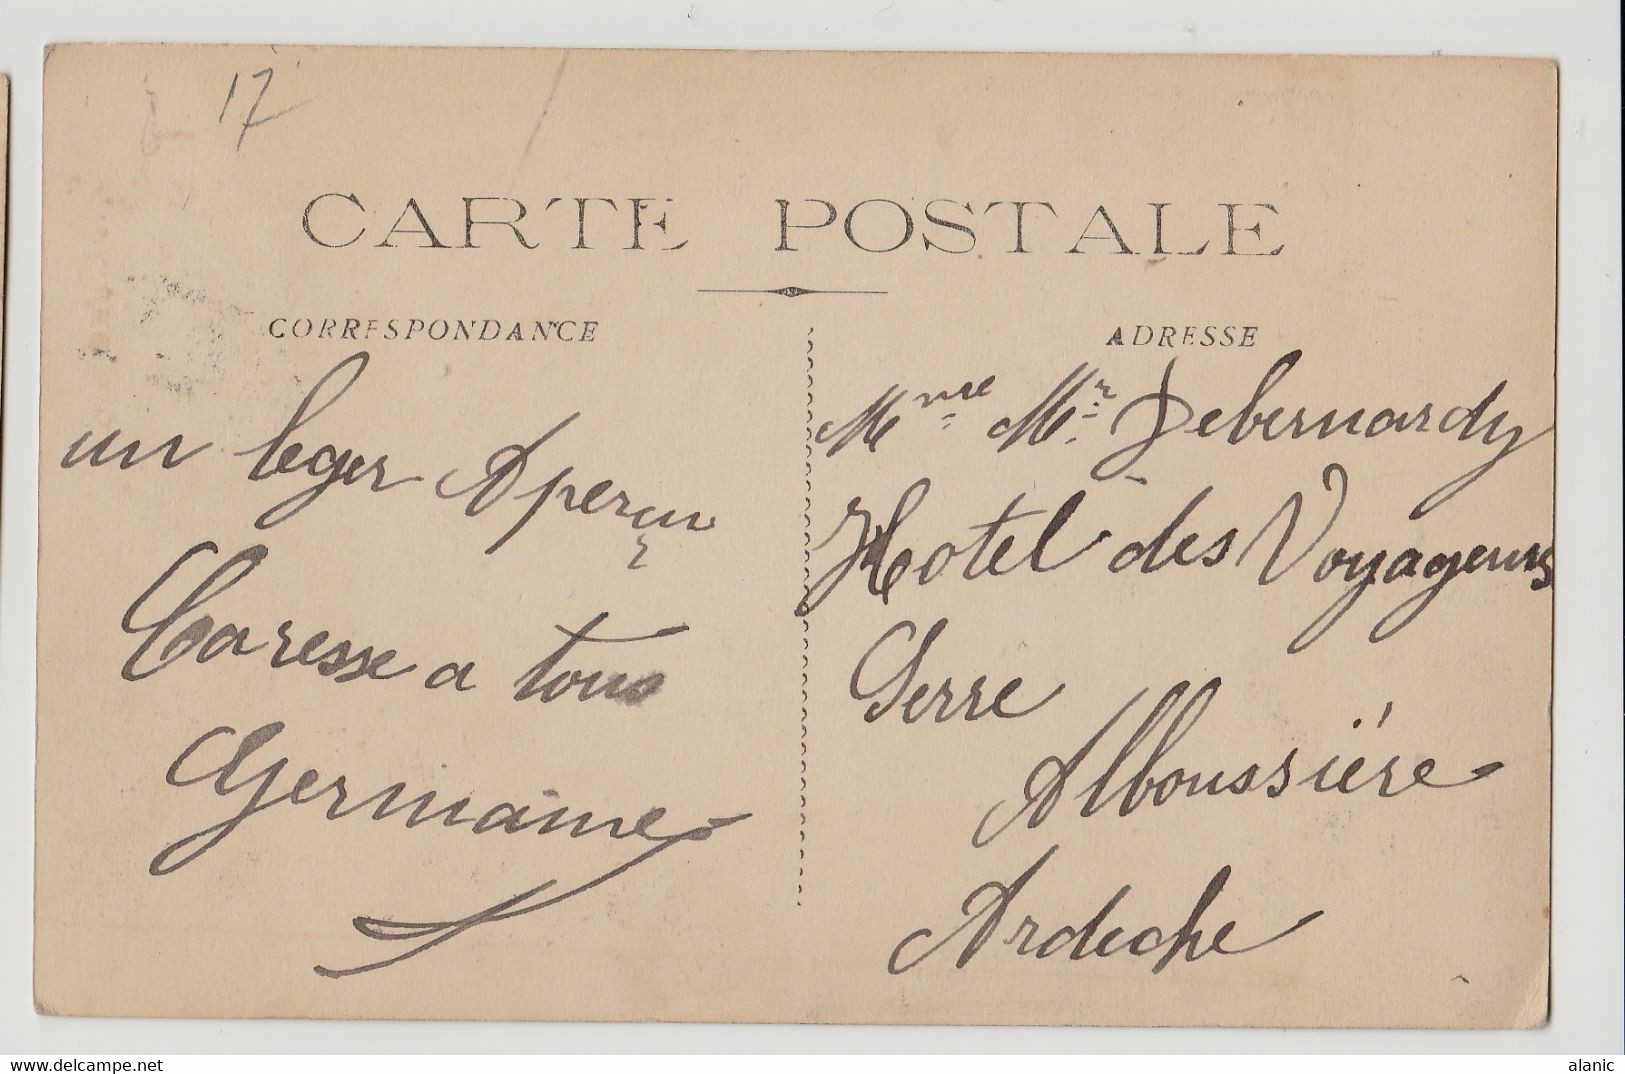 17
CARTE POSTALE
CORRESPONDANCE
ADRESSE
un leger Aperçu
Caresse a tous
Germaine
Mme Mr Debernardy
Hotel des Voyageurs
Serre
Alboussière
Ardeche
www.delcampe.net
alanic